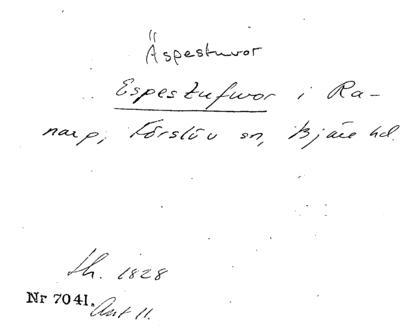 Äspestuvor
Espestufwor i Ra-
narp, Förslöv sn, Bjäre hd.
1828
Nr 7041.
Ant 11.